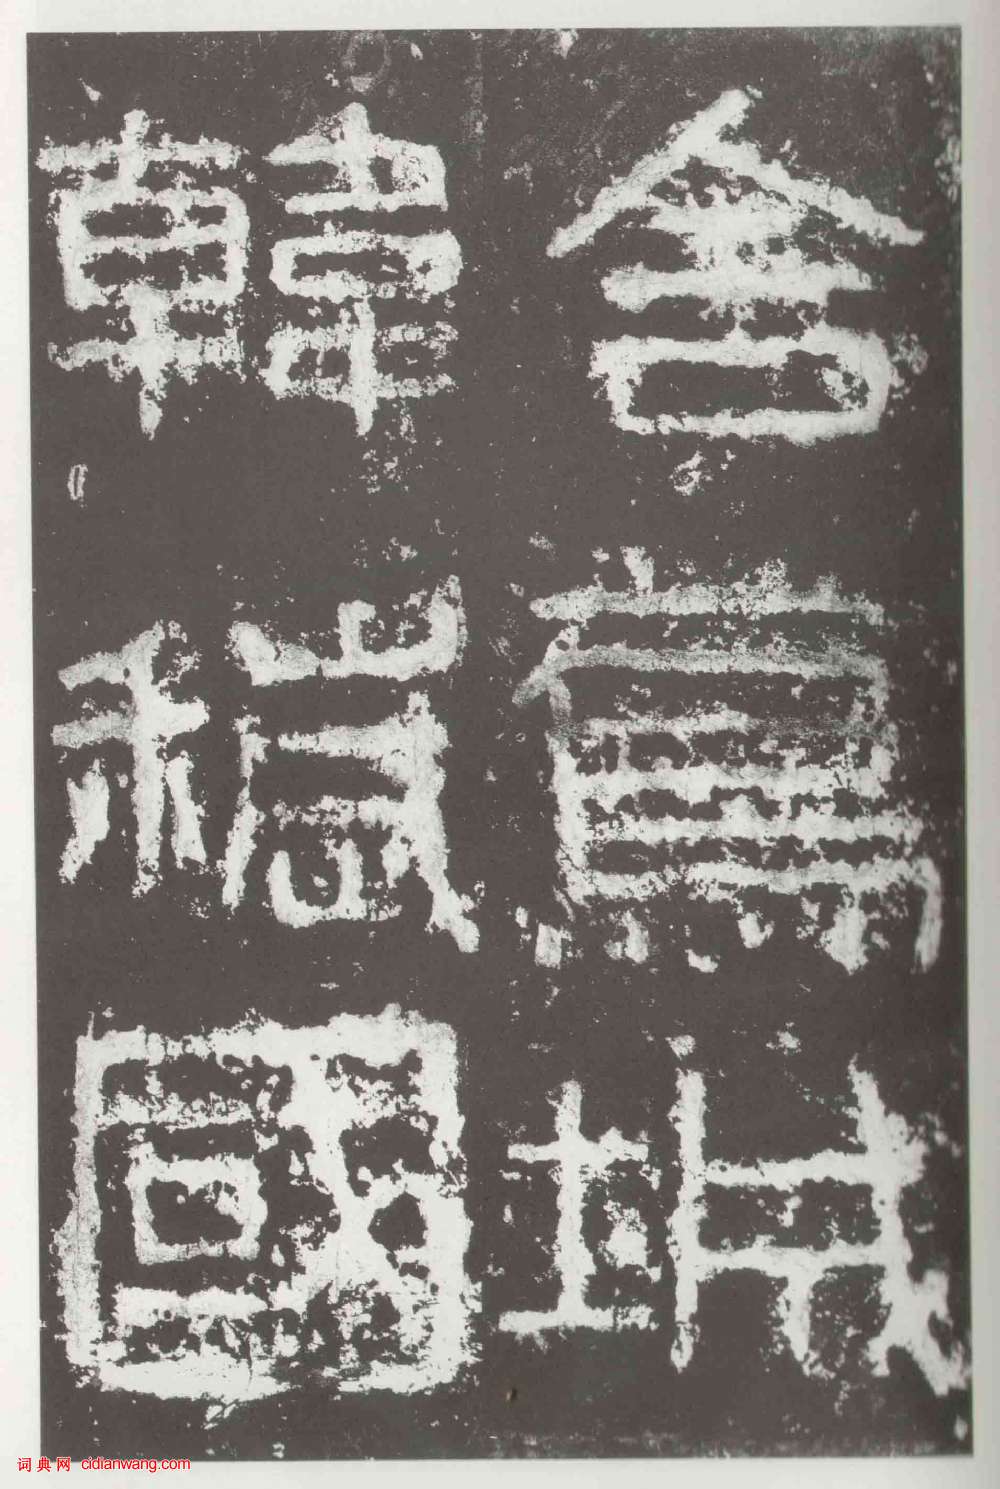 舍蔦城
韓穢國
词典网 cidianwang.com